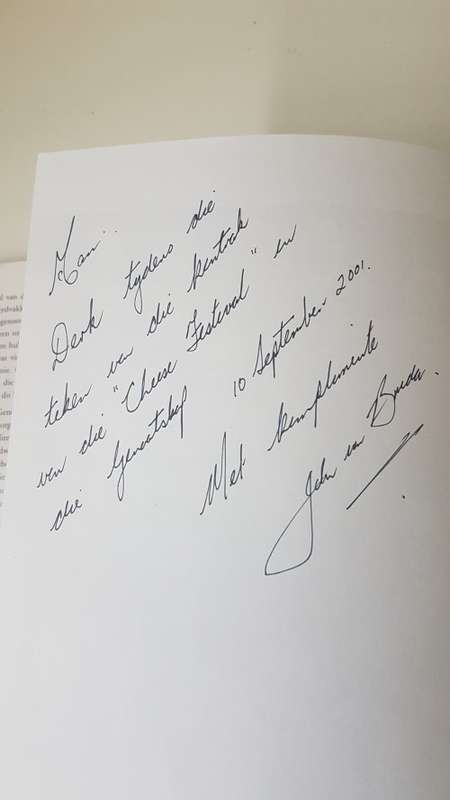 Aan..
Derk tydens die
teken van die kontrak
van die "Cheese Festival" en
die Genootskap 10 September 2001.
Met komplimente